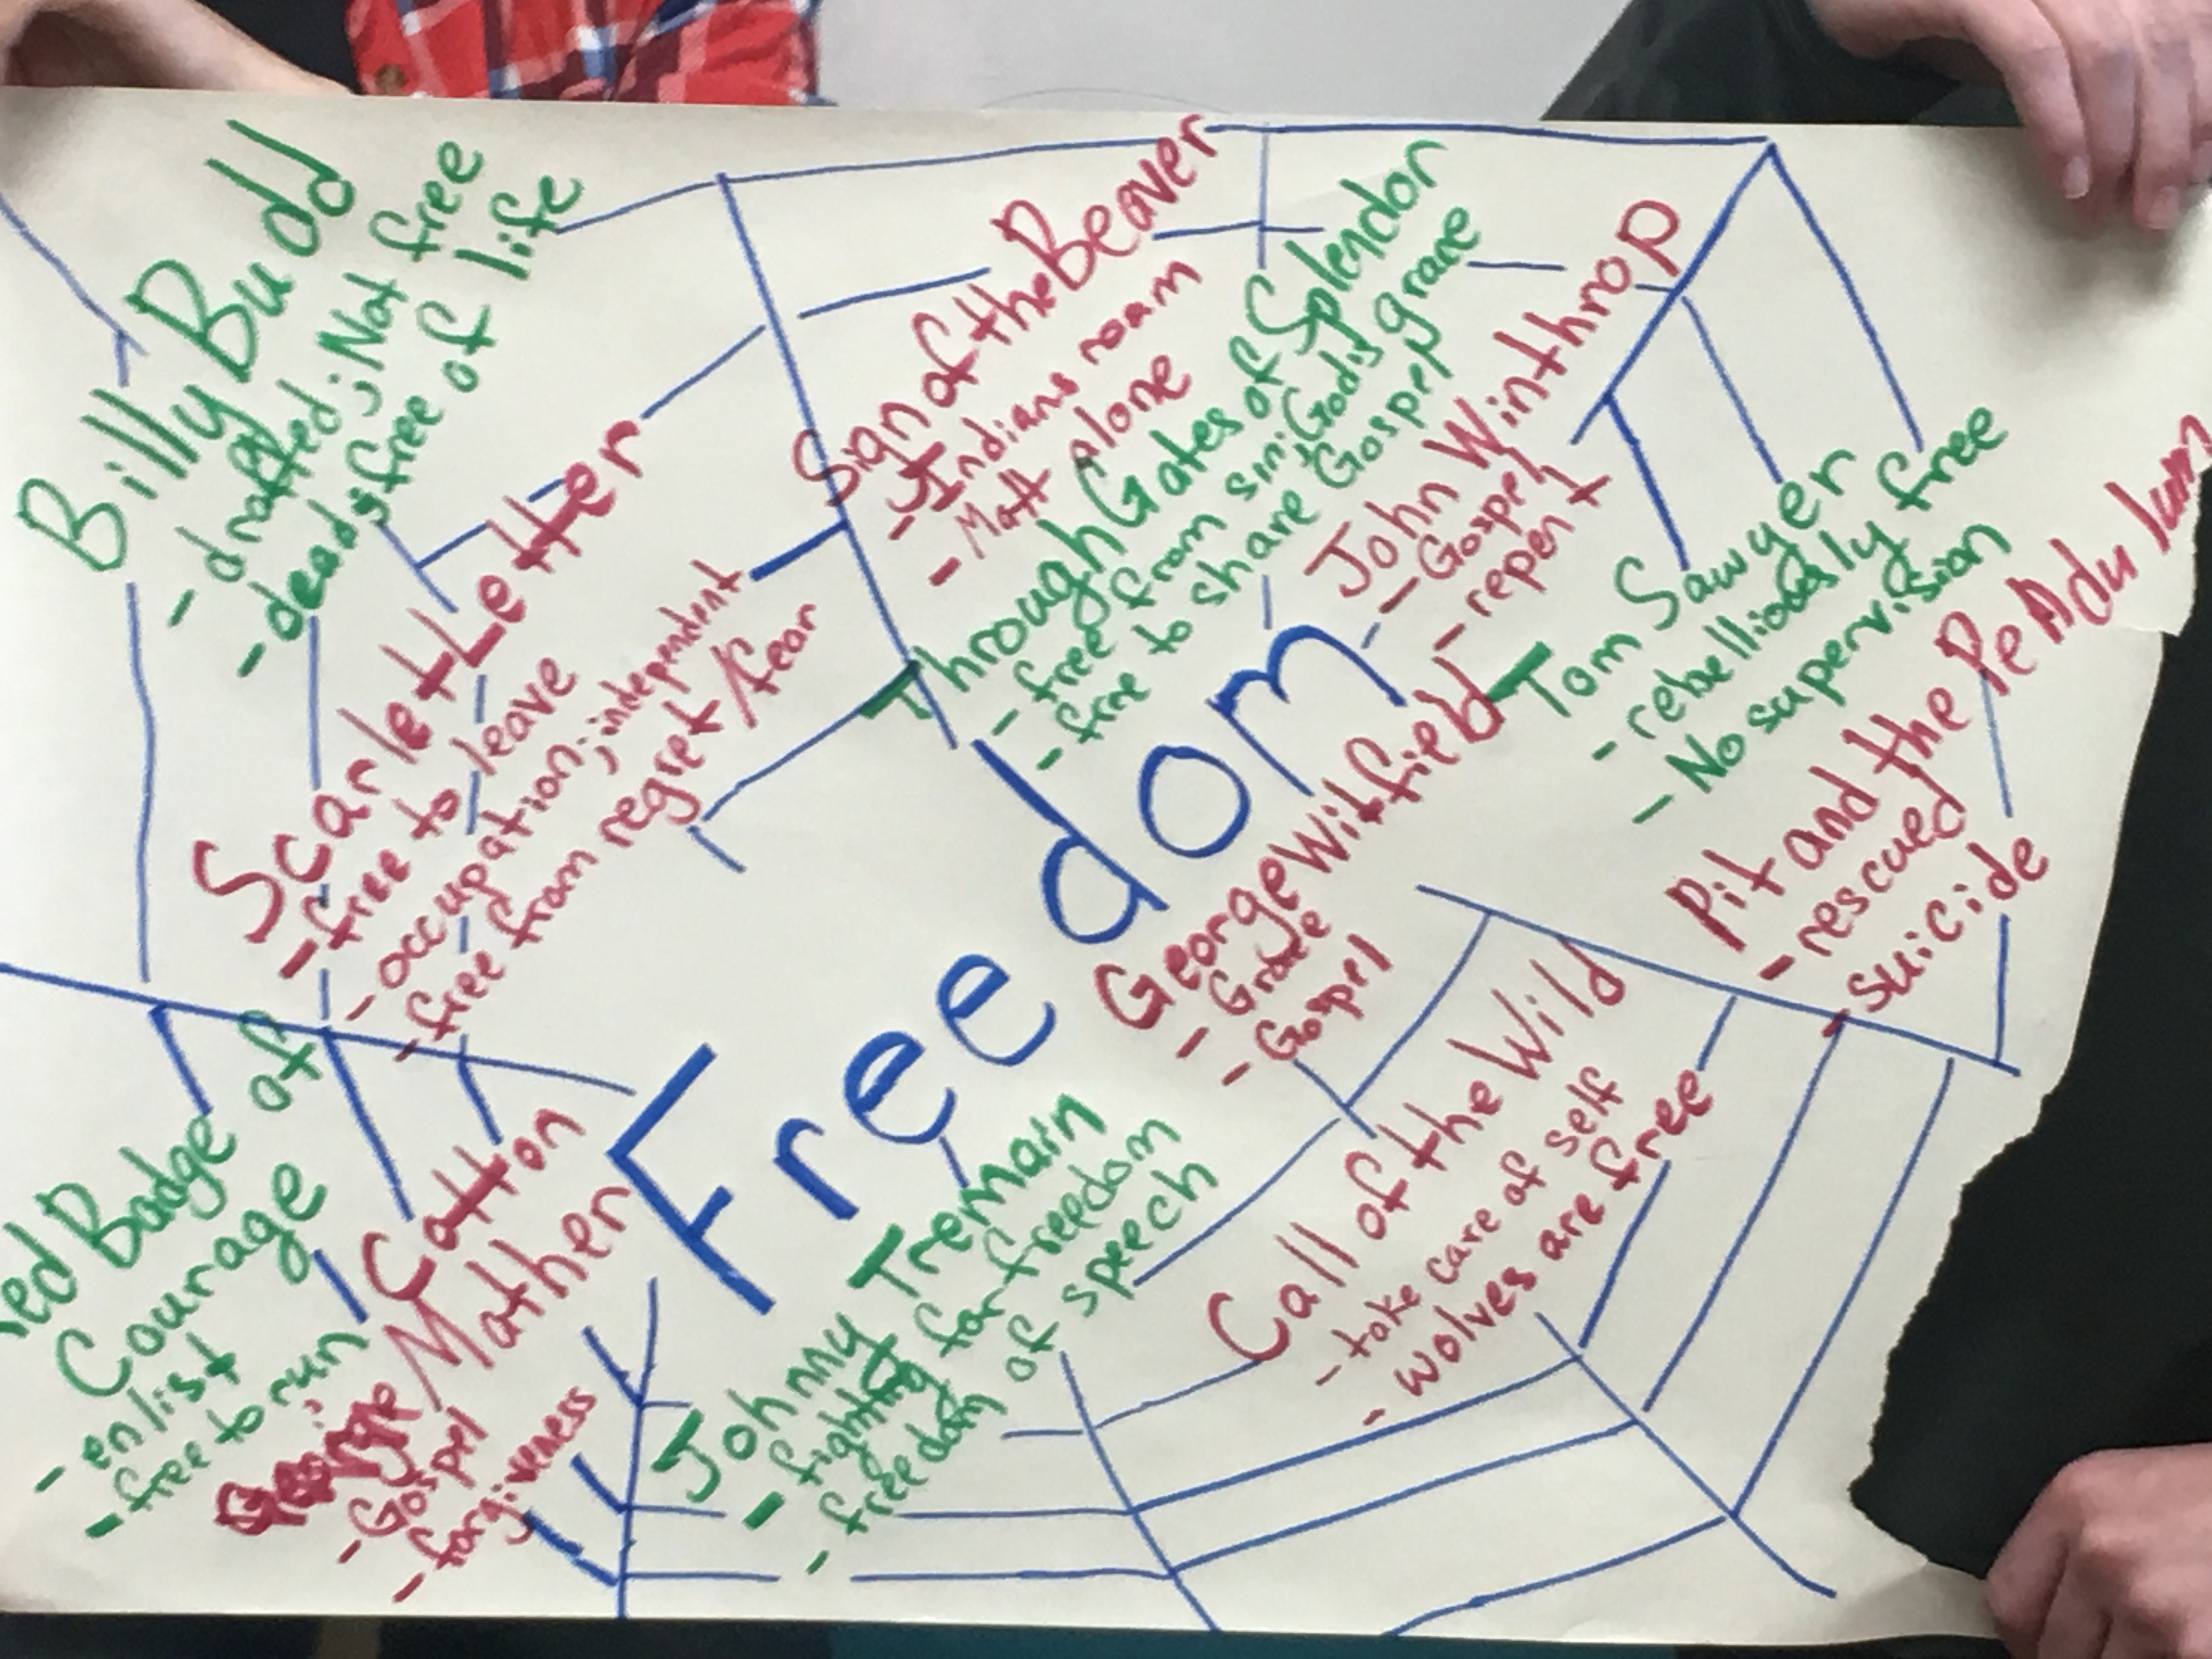 Billy Budd
- drafted; Not free
- dead; free of life
Scarlet Letter
- free to leave
- occupation; independent
- free from regret/fear
Sign of the Beaver
- Indians roam
- Matt alone
Through Gates of Splendor
- free from sin; God's grace
- free to share Gospel
John Winthrop
- Gospel
- repent
Tom Sawyer
- rebelliously free
- No supervision
Pit and the Pendulum
- rescued
- suicide
Freedom
George Witfield
- Grace
- Gospel
Call of the Wild
- take care of self
- wolves are free
Johnny Tremain
- fighting for freedom
- freedom of speech
Cotton
Mather
- Gospel
- forgiveness
Red Badge of
Courage
- enlist
- free to run